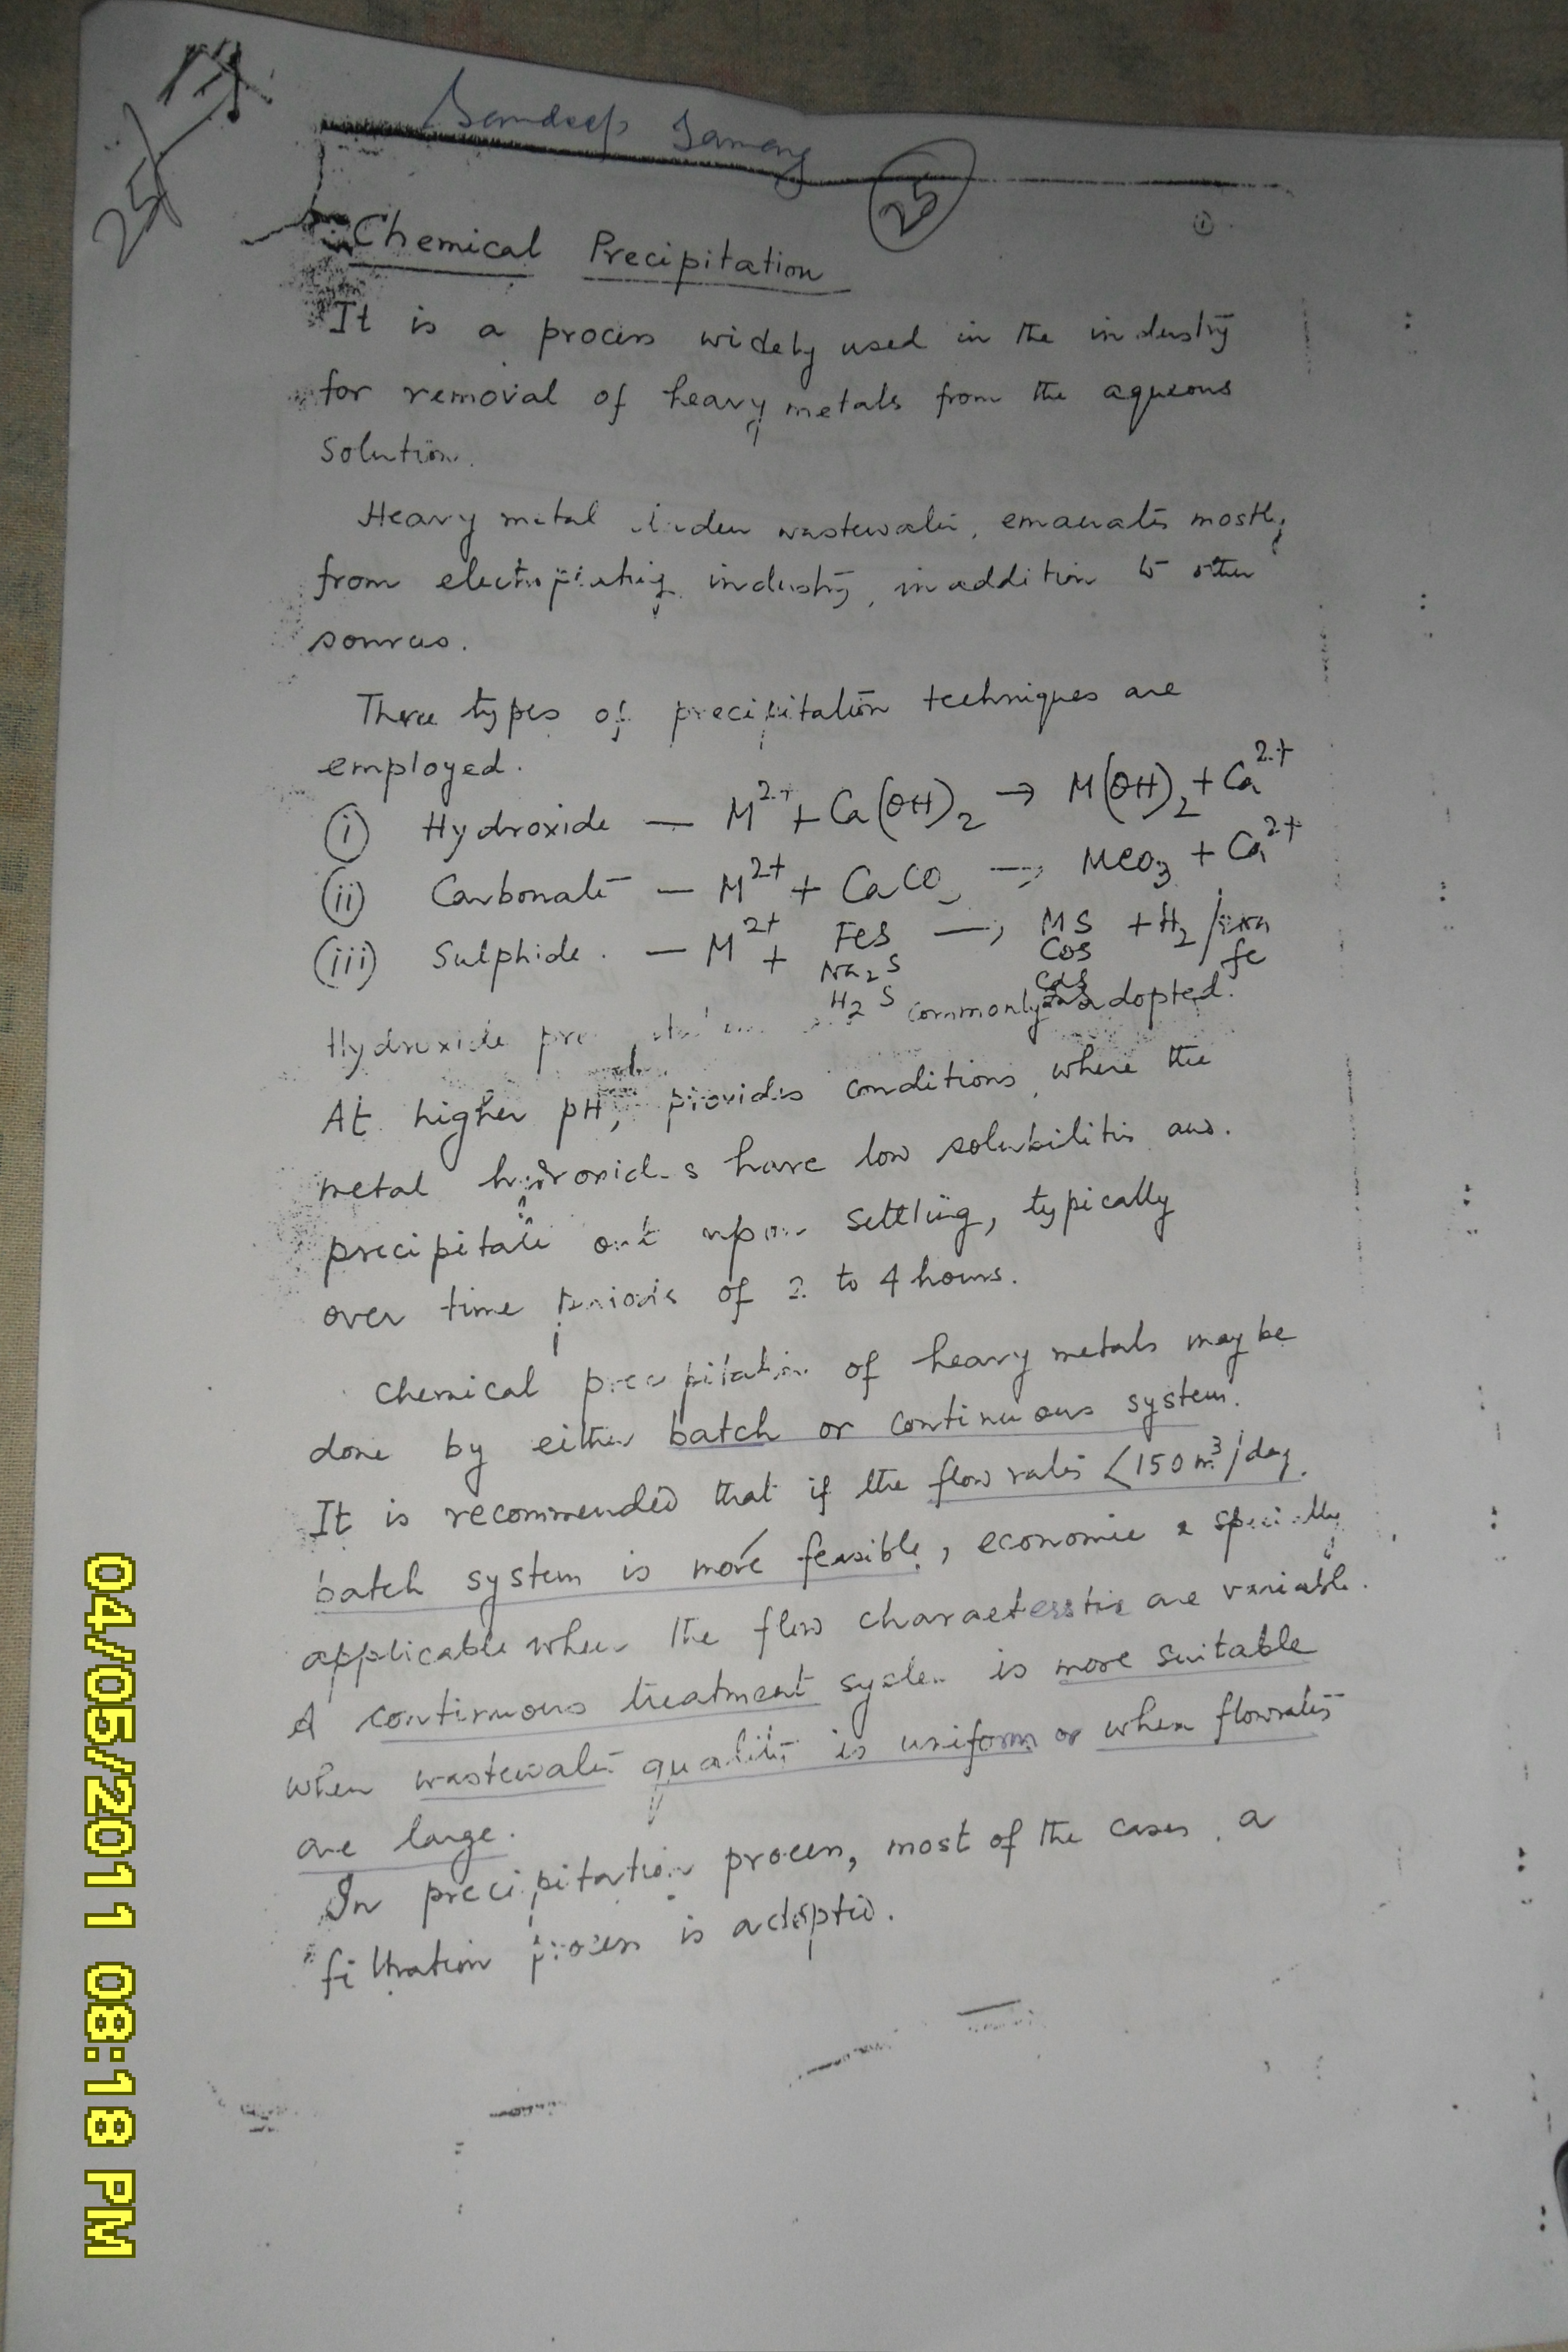 25
Sandeep
25
1
Chemical Precipitation
It is a process widely used in the industry
for removal of heavy metals from the aqueous
solution.
Heavy metal laden wastewater, emanates mostly
from electroplating industry, in addition to other
sources.
Three types of precipitation techniques are
employed.
(i) Hydroxide — M²⁺ + Ca(OH)₂ → M(OH)₂ + Ca²⁺
(ii) Carbonate — M²⁺ + CaCO₃ → MCO₃ + Ca²⁺
(iii) Sulphide. — M²⁺ + FeS → MS + H₂ / iron
Na₂S CoS fe
H₂S CdS
Hydroxide commonly adopted.
At higher pH, provides conditions where the
metal hydroxides have low solubilities and
precipitate out upon settling, typically
over time periods of 2 to 4 hours.
Chemical precipitation of heavy metals may be
done by either batch or continuous system.
It is recommended that if the flow rates <150 m³/day.
batch system is more feasible, economic & specially
applicable when the flow characterstics are variable.
A continuous treatment system is more suitable
when wastewater quality is uniform or when flowrates
are large.
In precipitation process, most of the cases, a
filtration process is adopted.
04/05/2011 08:18 PM